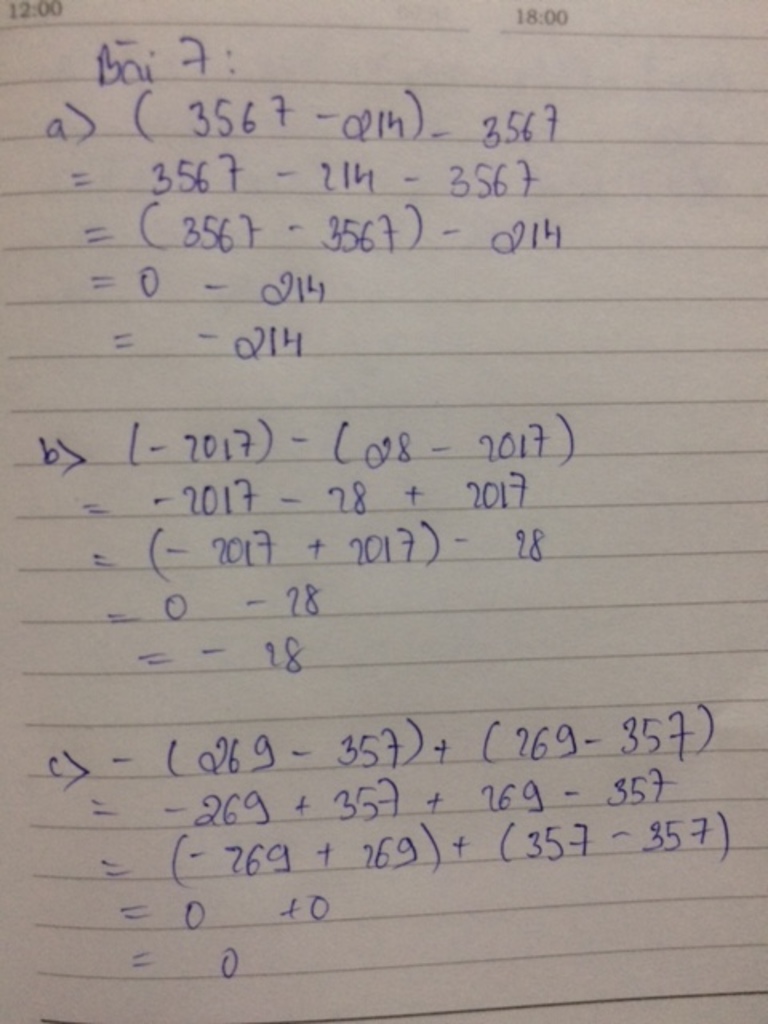 12:00
18:00
Bài 7:
a) ( 3567 - 214) - 3567
= 3567 - 214 - 3567
= ( 3567 - 3567) - 214
= 0 - 214
= - 214
b) (- 2017) - ( 28 - 2017)
= - 2017 - 28 + 2017
= (- 2017 + 2017) - 28
= 0 - 28
= - 28
c) - ( 269 - 357) + ( 269 - 357)
= - 269 + 357 + 269 - 357
= (- 269 + 269) + ( 357 - 357)
= 0 + 0
= 0